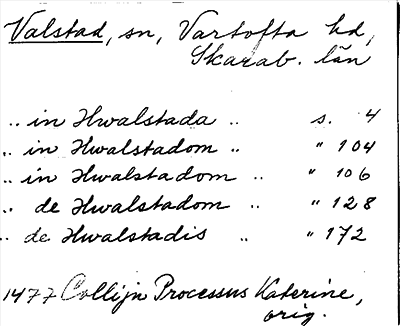 Valstad, sn, Vartofta hd,
Skarab. län
.. in Hwalstada .. s. 4
.. in Hwalstadom .. " 104
.. in Hwalstadom .. " 106
.. de Hwalstadom .. " 128
.. de Hwalstadis .. " 172
1477 Collijn Processus Katerine,
orig.